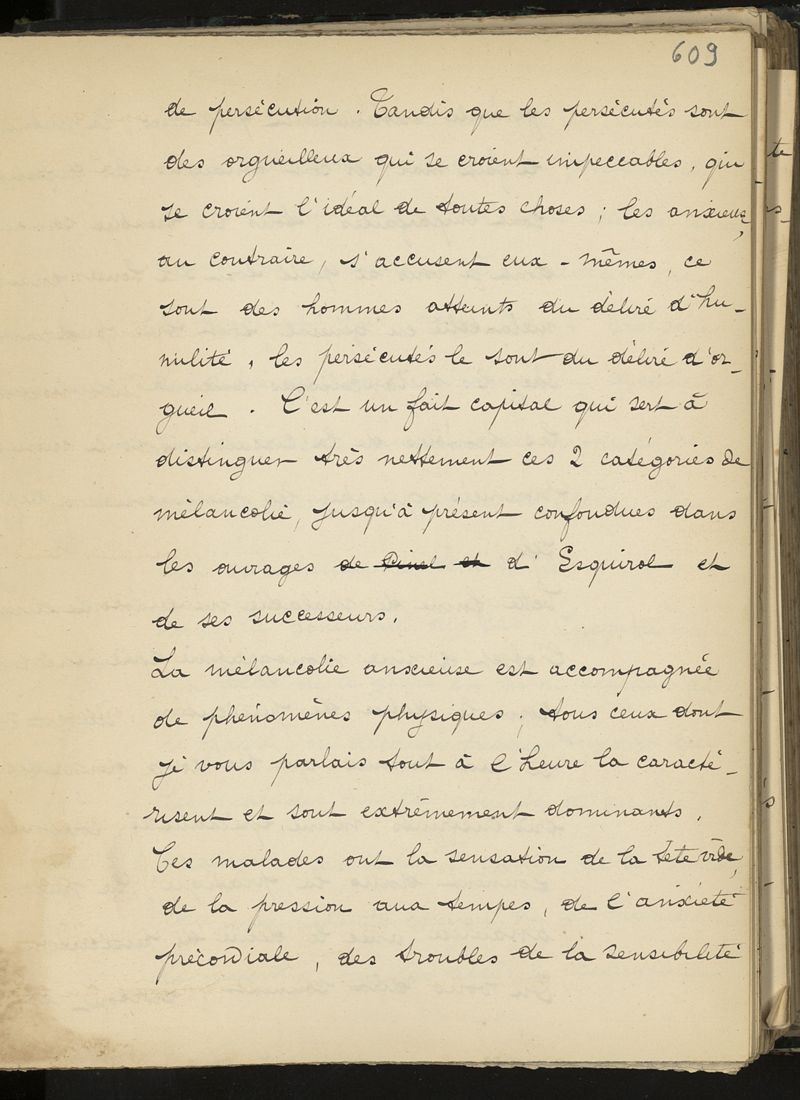 609
de persécution. Tandis que les persécutés sont
des orgueilleux qui se croient impeccables, qui
se croient l'idéal de toutes choses ; les anxieux,
au contraire, s'accusent eux-mêmes, ce
sont des hommes atteints du délire d'hu-
milité, les persécutés le sont du délire d'or-
gueil. C'est un fait capital qui sert à
distinguer très nettement ces 2 catégories de
mélancolie, jusqu'à présent confondues dans
les ouvrages de Pinel et d'Esquirol et
de ses successeurs.
La mélancolie anxieuse est accompagnée
de phénomènes physiques ; tous ceux dont
je vous parlais tout à l'heure la caracté-
risent et sont extrêmement dominants.
Ces malades ont la sensation de la tête vide,
de la pression aux tempes, de l'anxiété
précordiale, des troubles de la sensibilité